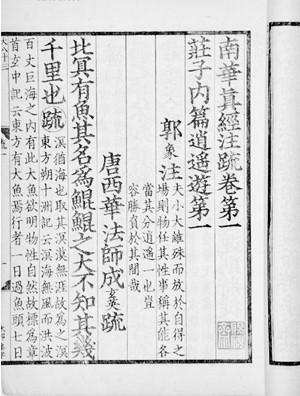 南華真經注疏卷第一
莊子内篇逍遙遊第一
郭象注
夫小大雖殊而放於自得之
場則物任其性事稱其能各
當其分逍遙一也豈
容勝負於其間哉
唐西華法師成玄英疏
北冥有魚其名為鯤鯤之大不知其幾
千里也疏
溟猶海也取其溟漠無涯故為之溟
東方朔十洲記云溟海無風而洪波
百丈巨海之内有此大魚欲明物性自然故標為章
首玄中記云東方有大魚焉行者一日過魚頭七日